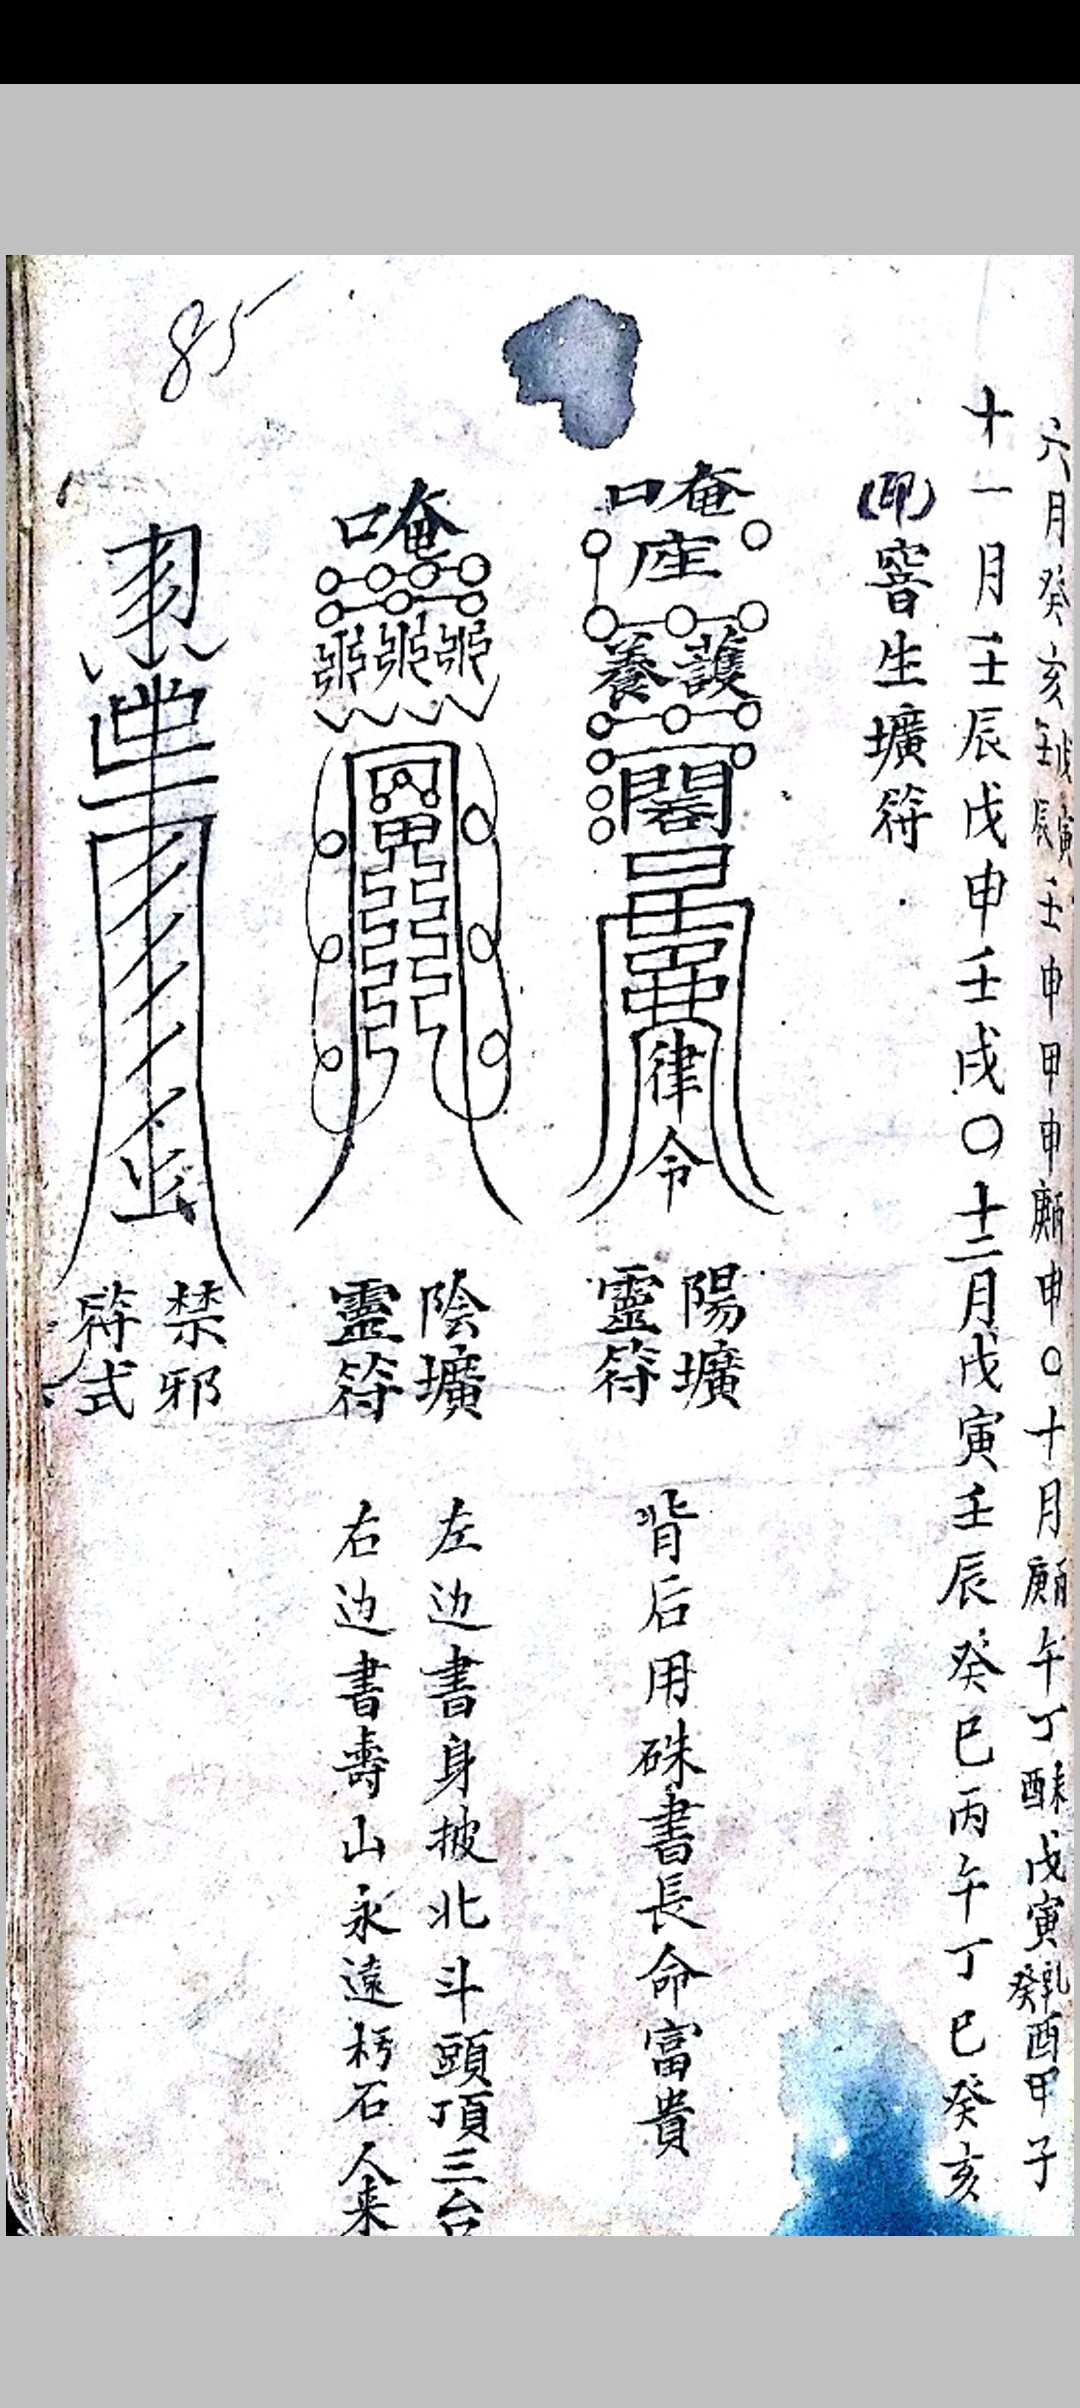 85
六月癸亥壬辰戊寅壬申甲申庚丙申〇十月庚丙午丁酉未戊寅癸辛酉甲子
十一月壬辰戊申壬戌〇十二月戊寅壬辰癸巳丙午丁巳癸亥
(即)窨生壙符.
唵
座
養護
閣
律令
陽壙
靈符
背后用硃書長命富貴
唵
陰壙
靈符
左边書身披北斗頭頂三台
右边書壽山永遠朽石人来
禁邪
符式